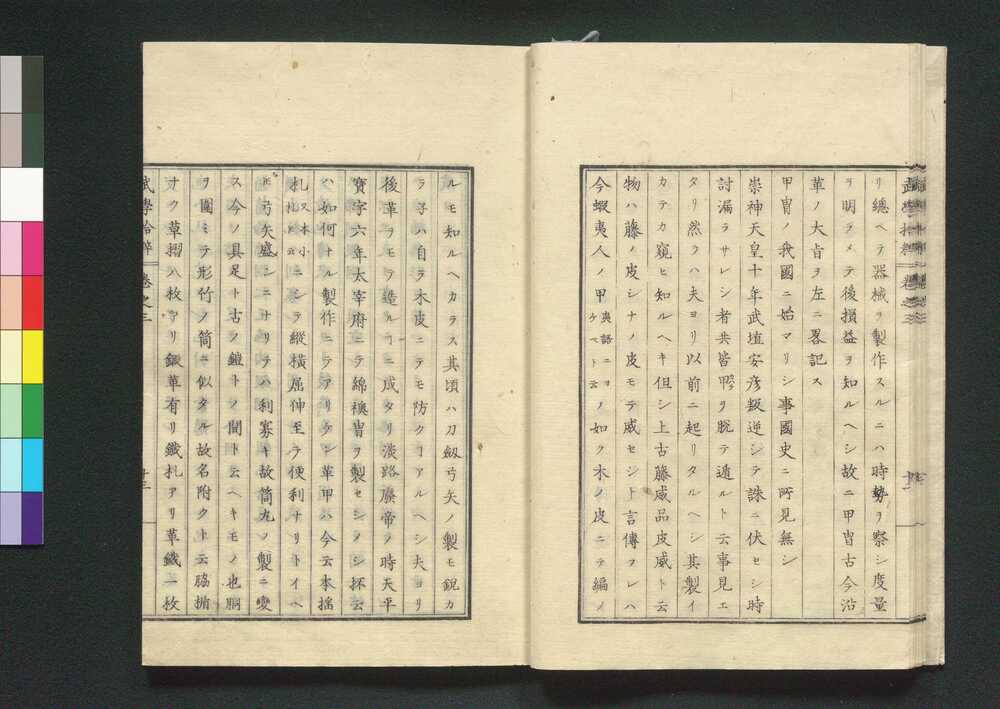 リ總ヘテ器械ヲ製作スルニハ時勢ヲ察シ度量
ヲ明ラメテ後損益ヲ知ルヘシ故ニ甲冑古今沿
革ノ大旨ヲ左ニ畧記ス
甲冑ノ我國ニ始マリシ事國史ニ所見無シ
崇神天皇十年武埴安彦叛逆シテ誅ニ伏セシ時
討漏ラサレシ者共皆甲ヲ脱テ遁ルト云事見エ
タリ然ラハ夫ヨリ以前ニ起リタルヘシ其製イ
カテカ窺ヒ知ルヘキ但シ上古藤威品皮威ト云
物ハ藤ノ皮シナノ皮モテ威セシト言傳フレハ
今蝦夷人ノ甲夷語ニヨケマト云ノ如ク木ノ皮ニテ編ノ
ルモ知ルヘカラス其頃ハ刀劔弓矢ノ製モ銳カ
ラ子ハ自ラ木皮ニテモ防クヿアルヘシ夫ヨリ
後革ヲモテ造ルヿニ成タリ淡路廢帝ノ時天平
寳字六年太宰府ニテ綿襖冑ヲ製セシメシ抔云
ハ如何ナル製作ニテアリケン革甲ハ今云本搖
札又本小札トモ云ニシテ縱橫屈伸至テ便利ナリトイヘ
モ弓矢盛ンニナリテハ利寡キ故筒丸ノ製ニ変
ス今ノ具足ト古ノ鎧トノ間ト云ヘキモノ也胴
ヲ圍ミテ形竹ノ筒ニ似タル故名附クト云脇楯
ナク草摺八枚アリ鍛革有リ鐵札アリ革鐵一枚
武學拾粹 卷之三